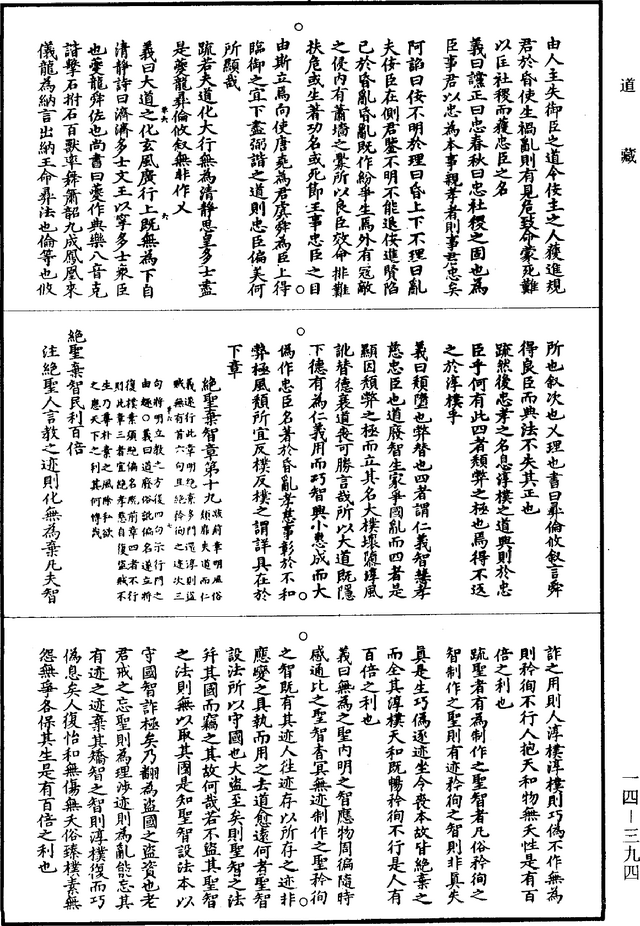 道藏
由人主失御臣之道令佞主之人獲進規
君於昏使生禍亂則有見危致命蒙死難
以匡社稷而獲忠臣之名
義曰讜正曰忠春秋曰忠社稷之固也為
臣事君以忠為本事親孝者則事君忠矣
阿諂曰佞不明於理曰昏上下不理曰亂
夫佞臣在側君鑒不明不能退佞進賢陷
已於昏亂昏亂既作紛爭生焉外有寇敵
之侵內有蕭墻之釁所以良臣效命排難
扶危或生著功名或死節王事忠臣之目
由斯立焉向使唐堯為君虞舜為臣上得
臨御之宜下盡弼諧之道則忠臣偏美何
所顯哉
疏若夫道化大行無為清靜思皇多士盡
是夔龍彝倫攸叙無非作乂
義曰大道之化玄風廣行上既無為下自
清靜詩曰濟濟多士文王以寧多士衆臣
也夔龍舜佐也尚書曰夔作典樂八音克
諧擊石拊石百獸率舞簫韶九成鳳凰來
儀龍為納言出納王命彝法也倫等也攸
所也叙次也乂理也書曰彝倫攸叙言舜
得良臣而典法不失其正也
疏然後忠孝之名息淳樸之道興則於忠
臣乎何有此四者頹弊之極也焉得不返
之於淳樸乎
義曰頹墮也弊替也四者謂仁義智慧孝
慈忠臣也道廢智生家爭國亂而四者是
顯因頹弊之極而立其名大樸壞隳淳風
訛替德衰道喪可勝言哉所以大道既隱
下德有為仁義用而巧智興小慧成而大
偽作忠臣名著於昏亂孝慈事彰於不和
弊極風頹所宜反樸反樸之謂詳具在於
下章
絕聖棄智章第十九
絕聖棄智民利百倍
注絕聖人言教之迹則化無為棄凡夫智
詐之用則人淳樸淳樸則巧偽不作無為
則矜徇不行人抱天和物無夭性是有百
倍之利也
疏聖者有為制作之聖智者凡俗矜徇之
智制作之聖則有迹矜徇之智則非真失
真是生巧偽逐迹坐令喪本故皆絕棄之
而全其淳樸天和既暢矜徇不行是人有
百倍之利也
義曰無為之聖内明之智應物周徧隨時
感通比之聖智杳冥無迹制作之聖矜徇
之智既有其迹人往迹存以所存之迹非
應變之具執而用之去道愈遠何者聖智
設法所以守國也大盜至矣則聖智之法
并其國而竊之其故何哉若不盜其聖智
之法則無以取其國是知聖智設法本以
守國智詐極矣乃翻為盜國之盜資也老
君戒之忘聖則為理涉迹則為亂能忘其
有迹之迹棄其矯智之智則淳樸復而巧
偽息矣人復怡和無傷無夭俗臻樸素無
怨無爭各保其生是有百倍之利也
一四—三九四